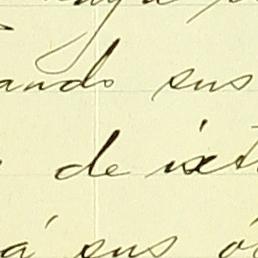 ando sus
de ixt
á sus ó